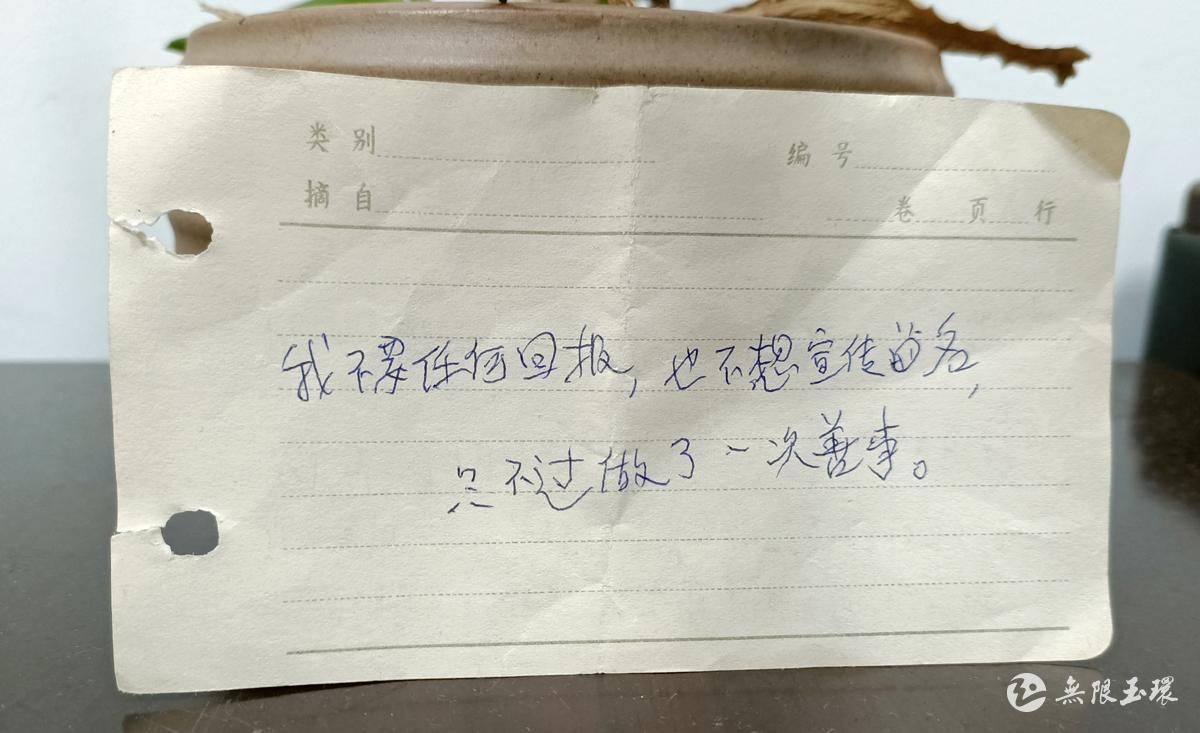 类别 编号
摘自 卷 页 行
我不要任何回报，也不想宣传留名，
只不过做了一次善事。
無限玉環